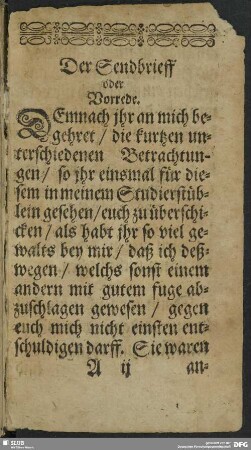 Der Sendbrieff
oder
Vorrede.
DEmnach jhr an mich be-
gehret / die kurtzen un-
terschiedenen Betrachtun-
gen / so jhr einsmal für die-
sem in meinem Studierstüb-
lein gesehen / euch zu überschi-
cken / als habt jhr so viel ge-
walts bey mir / daß ich deß-
wegen / welchs sonst einem
andern mit gutem fuge ab-
zuschlagen gewesen / gegen
euch mich nicht einsten ent-
schuldigen darff. Sie waren
A ij an-
SLUB
DFG